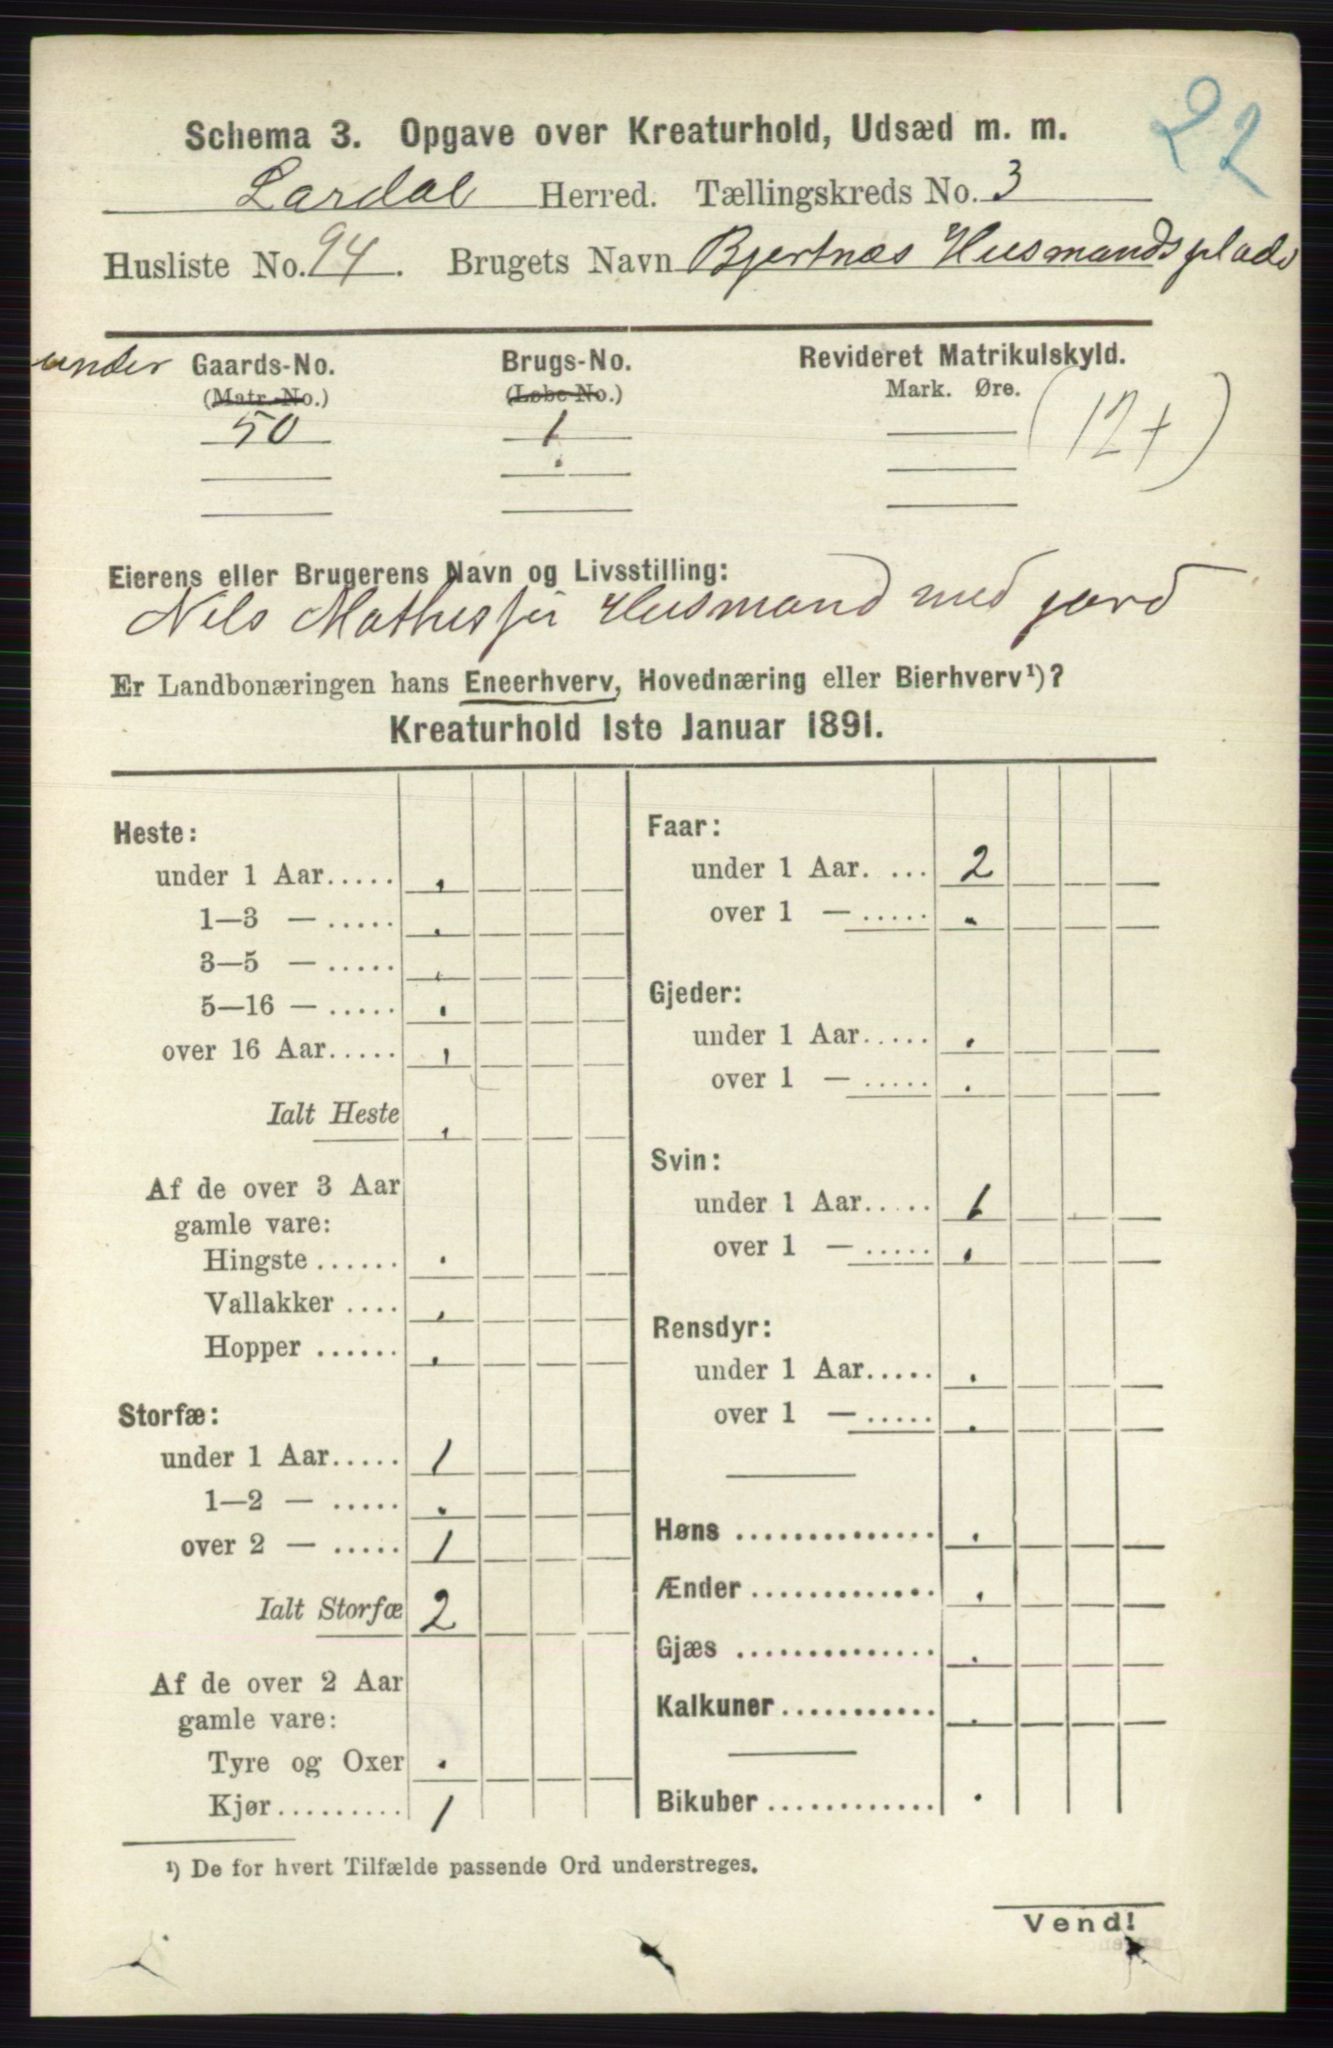 22
Schema 3. Opgave over Kreaturhold, Udsæd m. m.
Lardal Herred. Tællingskreds No. 3
Husliste No. 94. Brugets Navn Bjertnæs Husmandsplads
under Gaards-No. Brugs-No. Revideret Matrikulskyld.
(Matr.-No.) (Løbe-No.) Mark. Øre.
50 1 (12+)
Eierens eller Brugerens Navn og Livsstilling:
Nils Husmand med jord
Er Landbonæringen hans Eneerhverv, Hovednæring eller Bierhverv¹)?
Kreaturhold 1ste Januar 1891.
Heste:
under 1 Aar..... .
1—3 — ..... .
3—5 — ..... .
5—16 — ..... .
over 16 Aar..... .
Ialt Heste .
Af de over 3 Aar
gamle vare:
Hingste ...... .
Vallakker .... .
Hopper ...... .
Storfæ:
under 1 Aar..... 1
1—2 — ..... .
over 2 — ..... 1
Ialt Storfæ 2
Af de over 2 Aar
gamle vare:
Tyre og Oxer .
Kjør......... 1
Faar:
under 1 Aar. ... 2
over 1 — ..... .
Gjeder:
under 1 Aar..... .
over 1 — ..... .
Svin:
under 1 Aar..... 1
over 1 — ..... .
Rensdyr:
under 1 Aar..... .
over 1 — ..... .
Høns .............. .
Ænder ............. .
Gjæs .............. .
Kalkuner ........... .
Bikuber ............ .
¹) De for hvert Tilfælde passende Ord understreges.
Vend!